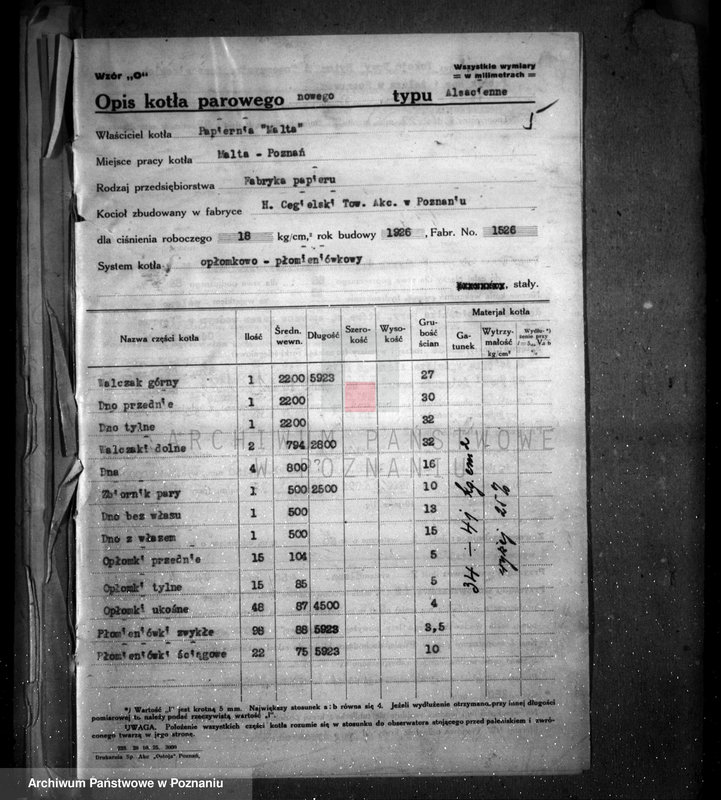 Wzór „O"
Wszystkie wymiary
= w milimetrach =
Opis kotła parowego nowego typu Alsacienne
Właściciel kotła Papiernia "Malta"
Miejsce pracy kotła Malta - Poznań
Rodzaj przedsiębiorstwa Fabryka papieru
Kocioł zbudowany w fabryce H. Cegielski Tow. Akc. w Poznaniu
dla ciśnienia roboczego 18 kg/cm,² rok budowy 1926, Fabr. No. 1526
System kotła opłomkowo - płomieniówkowy
, stały.
Nazwa części kotła Ilość Średn. wewn. Długość Szerokość Wysokość Grubość ścian Materjał kotła
Gatunek Wytrzymałość kg/cm² Wydłużenie przy
Walczak górny 1 2200 5923 27
Dno przednie 1 2200 30
Dno tylne 1 2200 32
Walczaki dolne 2 794 2800 32
Dna 4 800 16
Zbiornik pary 1 500 2500 10
Dno bez włazu 1 500 13
Dno z włazem 1 500 15
Opłomki przednie 15 104 5
Opłomki tylne 15 85 5
Opłomki ukośne 48 87 4500 4
Płomieniówki zwykłe 98 88 5923 3,5
Płomieniówki ściągowe 22 75 5923 10
34 - 41 kg cm 2
wyżej 25 %
*) Wartość „l" jest krotną 5 mm. Największy stosunek a : b równa się 4. Jeżeli wydłużenie otrzymano przy innej długości
pomiarowej to należy podać rzeczywistą wartość „l".
UWAGA. Położenie wszystkich części kotła rozumie się w stosunku do obserwatora stojącego przed paleniskiem i zwróconego twarzą w jego stronę.
Drukarnia Sp. Akc „Ostoja" Poznań,
ARCHIWUM PAŃSTWOWE
W POZNANIU
Archiwum Państwowe w Poznaniu